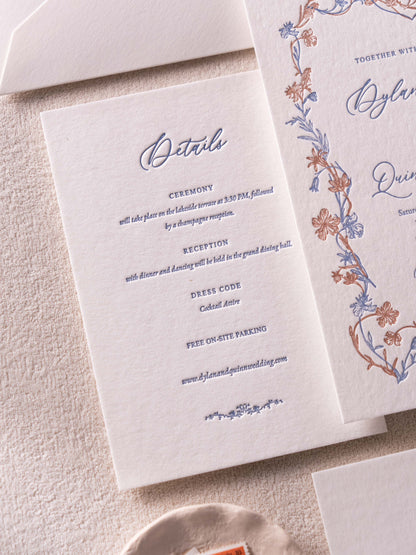 Details
CEREMONY
will take place on the lakeside terrace at 3:30 PM, followed
by a champagne reception.
RECEPTION
with dinner and dancing will be held in the grand dining hall.
DRESS CODE
Cocktail Attire
FREE ON-SITE PARKING
www.dylanandquinnwedding.com
TOGETHER WITH
Dylan
Quin
Satu